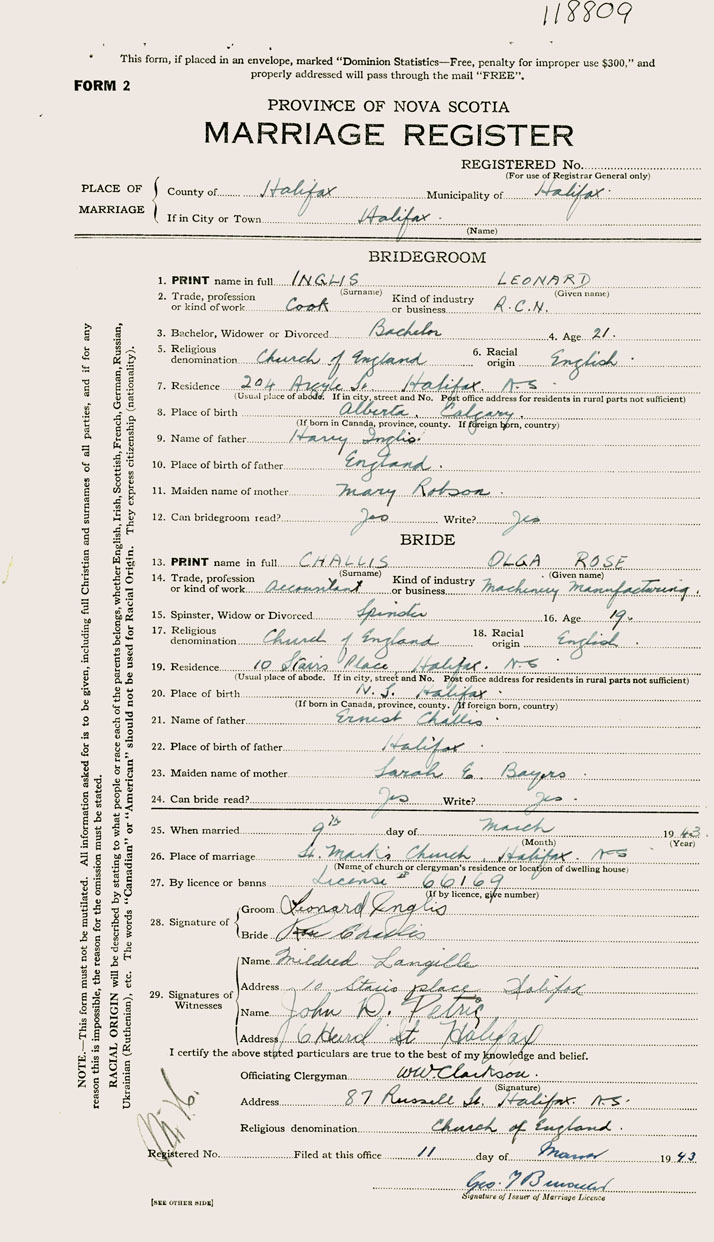 118809
This form, if placed in an envelope, marked "Dominion Statistics—Free, penalty for improper use $300," and
properly addressed will pass through the mail "FREE".
FORM 2
PROVINCE OF NOVA SCOTIA
MARRIAGE REGISTER
REGISTERED No.
(For use of Registrar General only)
PLACE OF MARRIAGE
County of Halifax Municipality of Halifax
If in City or Town Halifax
(Name)
BRIDEGROOM
1. PRINT name in full INGLIS LEONARD
(Surname) (Given name)
2. Trade, profession or kind of work Cook Kind of industry or business R.C.N.
3. Bachelor, Widower or Divorced Bachelor 4. Age 21.
5. Religious denomination Church of England 6. Racial origin English.
7. Residence 204 Argyle St. Halifax. N.S
(Usual place of abode. If in city, street and No. Post office address for residents in rural parts not sufficient)
8. Place of birth Alberta, Calgary.
(If born in Canada, province, county. If foreign born, country)
9. Name of father Harry Inglis.
10. Place of birth of father England.
11. Maiden name of mother Mary Robson.
12. Can bridegroom read? Yes Write? Yes
BRIDE
13. PRINT name in full CHALLIS OLGA ROSE
(Surname) (Given name)
14. Trade, profession or kind of work accountant Kind of industry or business Machinery Manufacturing.
15. Spinster, Widow or Divorced Spinster 16. Age 19.
17. Religious denomination Church of England 18. Racial origin English.
19. Residence 10 Stairs Place, Halifax. N.S
(Usual place of abode. If in city, street and No. Post office address for residents in rural parts not sufficient)
20. Place of birth N.S. Halifax.
(If born in Canada, province, county. If foreign born, country)
21. Name of father Ernest Challis.
22. Place of birth of father Halifax.
23. Maiden name of mother Sarah E. Bayers.
24. Can bride read? Yes Write? Yes.
25. When married 9th day of March 1943.
(Month) (Year)
26. Place of marriage St. Mark's Church, Halifax. N.S
(Name of church or clergyman's residence or location of dwelling house)
27. By licence or banns License # 66169
(If by licence, give number)
28. Signature of
Groom Leonard Inglis
Bride Challis
29. Signatures of Witnesses
Name Mildred Langille
Address 10 Stairs place Halifax
Name John D. Petrie
Address 6 Hurd St Halifax
I certify the above stated particulars are true to the best of my knowledge and belief.
Officiating Clergyman WW Clarkson.
(Signature)
Address 87 Russell St. Halifax. N.S.
Religious denomination Church of England.
Registered No. Filed at this office 11 day of March 1943
Geo.
Signature of Issuer of Marriage Licence
[SEE OTHER SIDE]
NOTE.—This form must not be mutilated. All information asked for is to be given, including full Christian and surnames of all parties, and if for any
reason this is impossible, the reason for the omission must be stated.
RACIAL ORIGIN will be described by stating to what people or race each of the parents belongs, whether English, Irish, Scottish, French, German, Russian,
Ukrainian (Ruthenian), etc. The words "Canadian" or "American" should not be used for Racial Origin. They express citizenship (nationality).